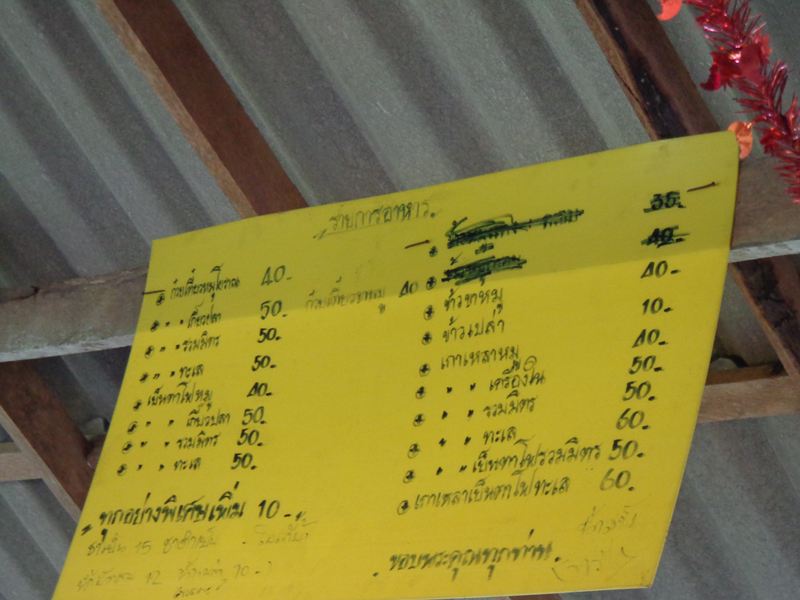 รายการอาหาร
ก๋วยเตี๋ยวหมูโบราณ 40.-
" " เกี๊ยวปลา 50.-
" " รวมมิตร 50.-
" " ทะเล 50.-
เย็นตาโฟหมู 40.-
" " เกี๊ยวปลา 50.-
" " รวมมิตร 50.-
" " ทะเล 50.-
" ทุกอย่างพิเศษเพิ่ม 10.- "
ก๋วยเตี๋ยวหมู 40
35.-
40.-
ข้าวขาหมู 40.-
ข้าวเปล่า 10.-
เกาเหลาหมู 40.-
" " เครื่องใน 50.-
" " รวมมิตร 50.-
" " ทะเล 60.-
" " เย็นตาโฟรวมมิตร 50.-
เกาเหลาเย็นตาโฟทะเล 60.-
ขอบพระคุณทุกท่าน